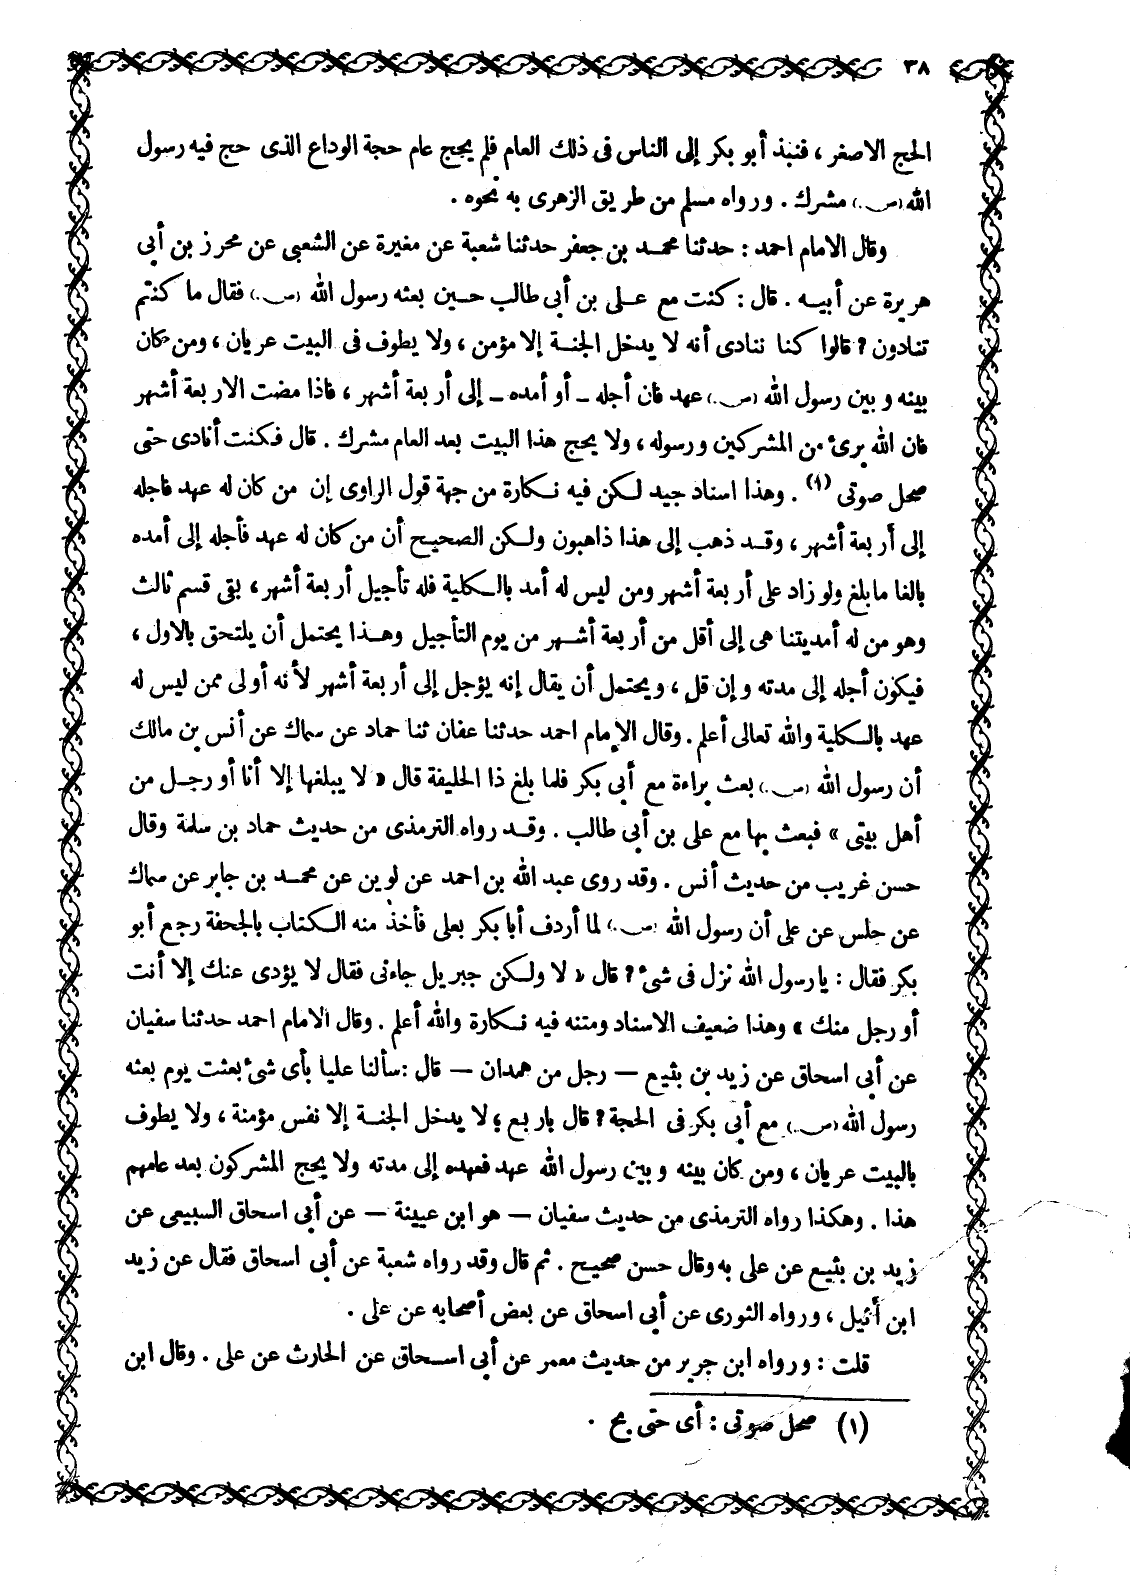 ٣٨
الحج الاصغر ، فنبذ أبو بكر إلى الناس فى ذلك العام فلم يحج عام حجة الوداع الذى حج فيه رسول
الله (ص) مشرك . ورواه مسلم من طريق الزهرى به نحوه .
وقال الامام احمد : حدثنا محمد بن جعفر حدثنا شعبة عن مغيرة عن الشعبى عن محرز بن أبى
هريرة عن أبيه . قال : كنت مع على بن أبى طالب حين بعثه رسول الله (ص) فقال ما كنتم
تنادون ? قالوا كنا ننادى أنه لا يدخل الجنة إلا مؤمن ، ولا يطوف فى البيت عريان ، ومن كان
بينه وبين رسول الله (ص) عهد فان أجله ـ أو أمده ـ إلى أربعة أشهر ، فاذا مضت الاربعة أشهر
فان الله برىء من المشركين ورسوله ، ولا يحج هذا البيت بعد العام مشرك . قال فكنت أنادى حتى
صحل صوتى (١) . وهذا اسناد جيد لكن فيه نكارة من جهة قول الراوى إن من كان له عهد فاجله
إلى أربعة أشهر ، وقد ذهب إلى هذا ذاهبون ولكن الصحيح أن من كان له عهد فأجله إلى أمده
بالغا ما بلغ ولو زاد على أربعة أشهر ومن ليس له أمد بالكلية فله تأجيل أربعة أشهر ، بقى قسم ثالث
وهو من له أمد يتنا هى إلى أقل من أربعة أشهر من يوم التأجيل وهذا يحتمل أن يلتحق بالاول ،
فيكون أجله إلى مدته وإن قل ، ويحتمل أن يقال إنه يؤجل إلى أربعة أشهر لأنه أولى ممن ليس له
عهد بالكلية والله تعالى أعلم . وقال الإمام احمد حدثنا عفان ثنا حماد عن سماك عن أنس بن مالك
أن رسول الله (ص) بعث براءة مع أبى بكر فلما بلغ ذا الحليفة قال « لا يبلغها إلا أنا أو رجل من
أهل بيتى » فبعث بها مع على بن أبى طالب . وقد رواه الترمذى من حديث حماد بن سلمة وقال
حسن غريب من حديث أنس . وقد روى عبد الله بن احمد عن لوين عن محمد بن جابر عن سماك
عن حلس عن على أن رسول الله (ص) لما أردف أبا بكر بعلى فأخذ منه الكتاب بالجحفة رجع أبو
بكر فقال : يا رسول الله نزل فى شىء ? قال « لا ولكن جبريل جاءنى فقال لا يؤدى عنك إلا أنت
أو رجل منك » وهذا ضعيف الاسناد ومتنه فيه نكارة والله أعلم . وقال الامام احمد حدثنا سفيان
عن أبى اسحاق عن زيد بن يثيع — رجل من همدان — قال : سألنا عليا بأى شىء بعثت يوم بعثه
رسول الله (ص) مع أبى بكر فى الحجة ? قال باربع ؛ لا يدخل الجنة إلا نفس مؤمنة ، ولا يطوف
بالبيت عريان ، ومن كان بينه وبين رسول الله عهد فعهده إلى مدته ولا يحج المشركون بعد عامهم
هذا . وهكذا رواه الترمذى من حديث سفيان — هو ابن عيينة — عن أبى اسحاق السبيعى عن
زيد بن يثيع عن على به وقال حسن صحيح . ثم قال وقد رواه شعبة عن أبى اسحاق فقال عن زيد
ابن أثيل ، ورواه الثورى عن أبى اسحاق عن بعض أصحابه عن على .
قلت : ورواه ابن جرير من حديث معمر عن أبى اسحاق عن الحارث عن على . وقال ابن
(١) صحل صوتى : أى حتى بح .